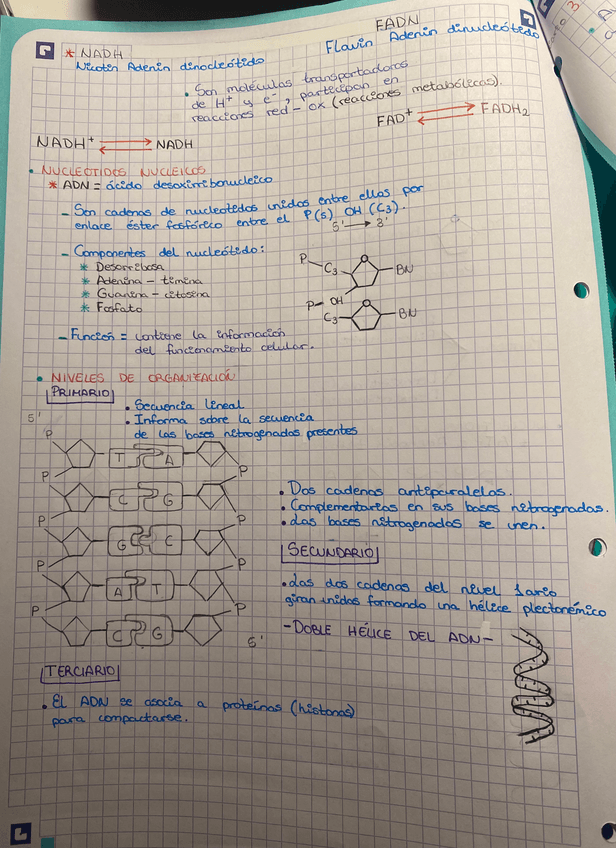 * NADH
Nicotin Adenin dinocleótido
FADN
Flavin Adenin dinucleótido
• Son moléculas transportadoras
de H+ y e-, participan en
reacciones red-ox (reacciones metabólicas).
NADH+ ⇄ NADH
FAD+ ⇄ FADH2
• NUCLEOTIDOS NUCLEICOS
* ADN = ácido desoxirribonucleico
- Son cadenas de nucleotedos unidos entre ellos por
enlace éster fosfórico entre el P(5) OH (C3).
5' → 3'
- Componentes del nucleótido:
* Desorribosa
* Adenina - timina
* Guanina - citosina
* Fosfato
P
C3
O
BN
P- OH
C3
O
BN
- Función = contiene la información
del funcionamiento celular.
• NIVELES DE ORGANIZACIÓN
PRIMARIO
• Secuencia lineal
• Informa sobre la secuencia
de las bases nitrogenadas presentes
5'
P
T A
P P
C G
P P
G C
P P
A T
P P
C G
5'
• Dos cadenas antiparalelas.
• Complementarias en sus bases nitrogenadas.
• Las bases nitrogenadas se unen.
SECUNDARIO
• Las dos cadenas del nivel 1ario
giran unidos formando una hélice plectonémico
- DOBLE HÉLICE DEL ADN -
TERCIARIO
• El ADN se asocia a proteínas (histonas)
para compactarse.